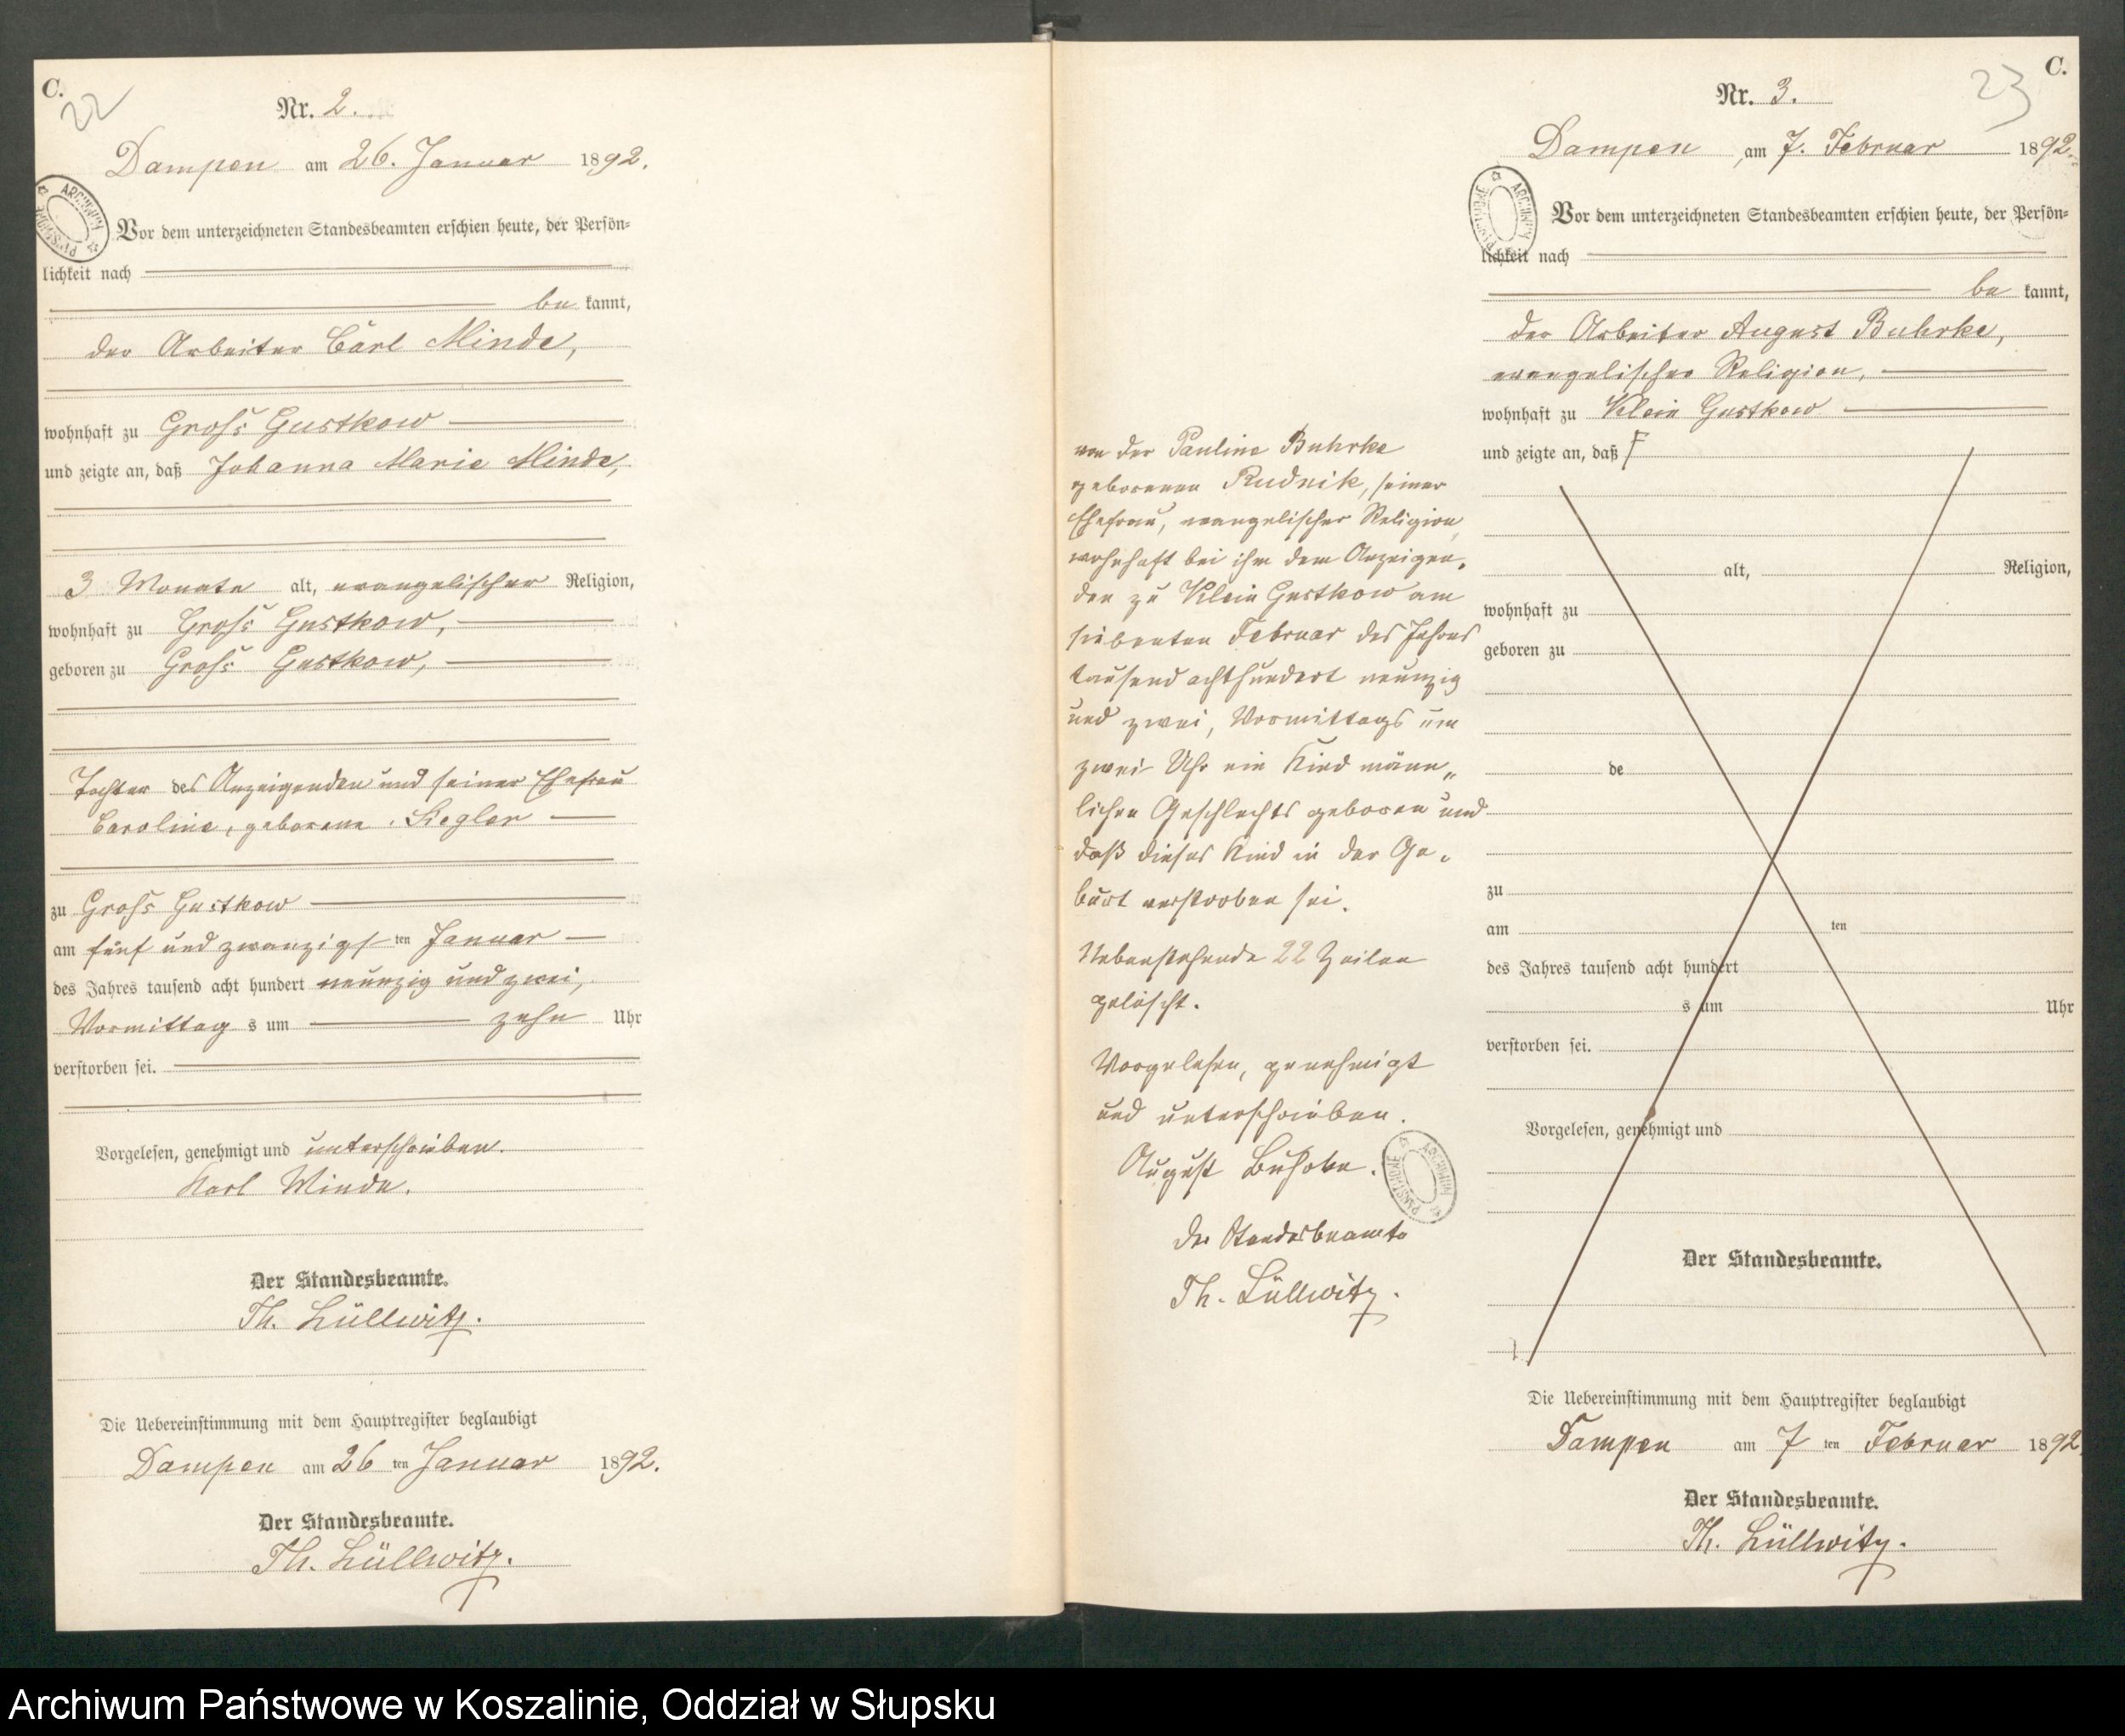 C.
22
Nr. 2.
Dampen am 26. Januar 1892.
Vor dem unterzeichneten Standesbeamten erschien heute, der Persön-
lichkeit nach
be kannt,
der Arbeiter Carl Minde,
wohnhaft zu Gross Gustkow
und zeigte an, daß Johanna Marie Minde,
3 Monate alt, evangelischer Religion,
wohnhaft zu Gross Gustkow,
geboren zu Gross Gustkow,
Tochter des Anzeigenden und seiner Ehefrau
Caroline, geborene Siegler
zu Gross Gustkow
am fünf und zwanzigsten Januar
des Jahres tausend acht hundert neunzig und zwei,
Vormittags um zehn Uhr
verstorben sei.
Vorgelesen, genehmigt und unterschrieben.
Karl Minde.
Der Standesbeamte.
Th. Lüllwitz.
Die Uebereinstimmung mit dem Hauptregister beglaubigt
Dampen am 26 ten Januar 1892.
Der Standesbeamte.
Th. Lüllwitz.
C.
23
Nr. 3.
Dampen am 7. Februar 1892.
Vor dem unterzeichneten Standesbeamten erschien heute, der Persön-
lichkeit nach
be kannt,
der Arbeiter August Buhrke,
evangelischer Religion,
wohnhaft zu Klein Gustkow
und zeigte an, daß F
von der Pauline Buhrke
geborenen Rudnik, seiner
Ehefrau, evangelischer Religion,
wohnhaft bei ihm dem Anzeigen-
den zu Klein Gustkow am
siebenten Februar des Jahres
tausend achthundert neunzig
und zwei, Vormittags um
zwei Uhr ein Kind männ-
lichen Geschlechts geboren und
daß dieses Kind in der Ge-
burt verstorben sei.
Nebenstehende 22 Zeilen
gelöscht.
Vorgelesen, genehmigt
und unterschrieben.
August Buhrke.
Der Standesbeamte
Th. Lüllwitz.
alt, Religion,
wohnhaft zu
geboren zu
de
zu
am ten
des Jahres tausend acht hundert
s um Uhr
verstorben sei.
Vorgelesen, genehmigt und
Der Standesbeamte.
Die Uebereinstimmung mit dem Hauptregister beglaubigt
Dampen am 7 ten Februar 1892
Der Standesbeamte.
Th. Lüllwitz.
Archiwum Państwowe w Koszalinie, Oddział w Słupsku